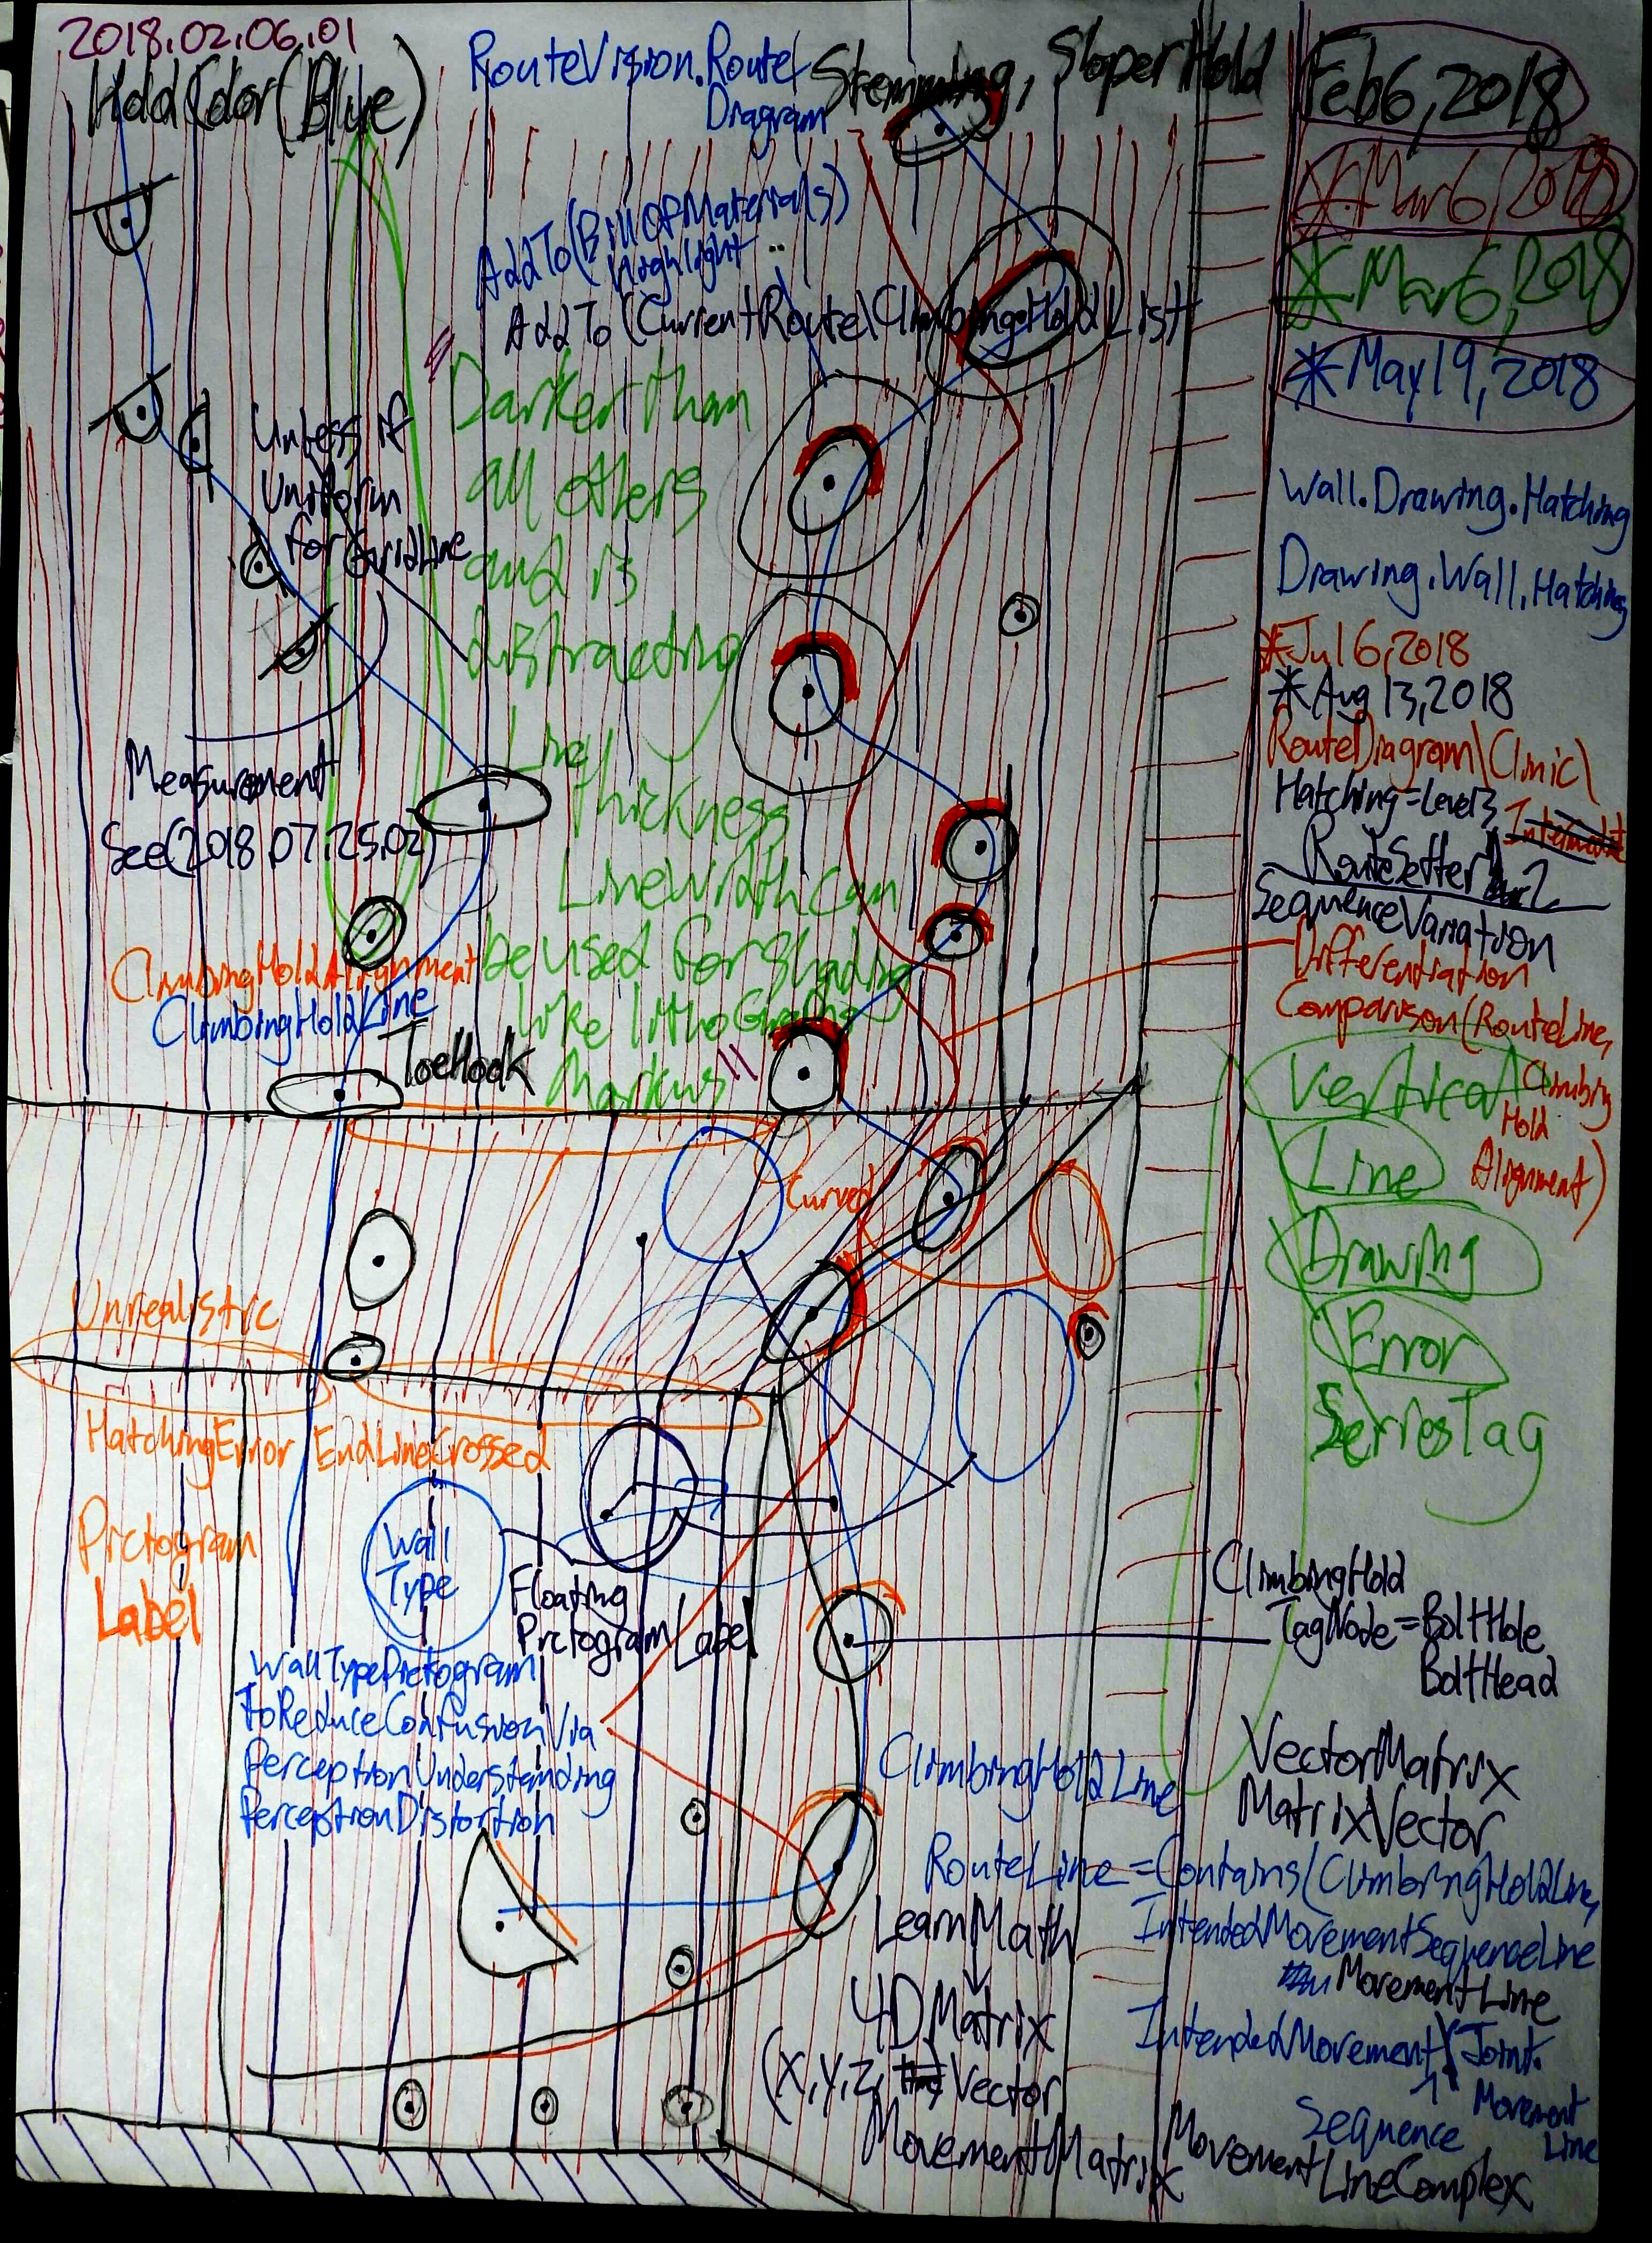 2018.02.06.01
HoldColor(Blue)
RouteVision.Route
Diagram
Stemming, SloperHold
Feb6,2018
*Mar6,2018
*Mar6,2018
*May19,2018
AddTo(BillOfMaterials)
Highlight
AddTo(CurrentRoute\ClimbingHoldList
"Darker than
all others
and is
distracting
Line
thickness
LineWidth can
be used for shading
like lithoGraphs
Markus"
Unless if
Uniform
for GridLine
Measurement
See(2018.07.25.02)
ClimbingHoldAlignment
ClimbingHoldLine
ToeHook
Wall.Drawing.Hatching
Drawing.Wall.Hatching
*Jul6,2018
*Aug13,2018
RouteDiagram\Clinic\
Hatching=Level3
RouteSetter
2
SequenceVariation
Differentiation
Comparison(RouteLine,
Climbing
Hold
Alignment)
Vertical
Line
Drawing
Error
SeriesTag
Curved
Unrealistic
HatchingError
EndLineCrossed
Pictogram
Label
Wall
Type
Floating
PictogramLabel
WallTypePictogram
ToReduceConfusionVia
PerceptionUnderstanding
PerceptionDistortion
ClimbingHold
TagNode=BoltHole
BoltHead
VectorMatrix
MatrixVector
ClimbingHoldLine
RouteLine=Contains(ClimbingHoldLine,
IntendedMovementSequenceLine
MovementLine
IntendedMovement
Joint.
Movement
Line
Sequence
LearnMath
4DMatrix
(X,Y,Z,
Vector
MovementMatrix
MovementLineComplex